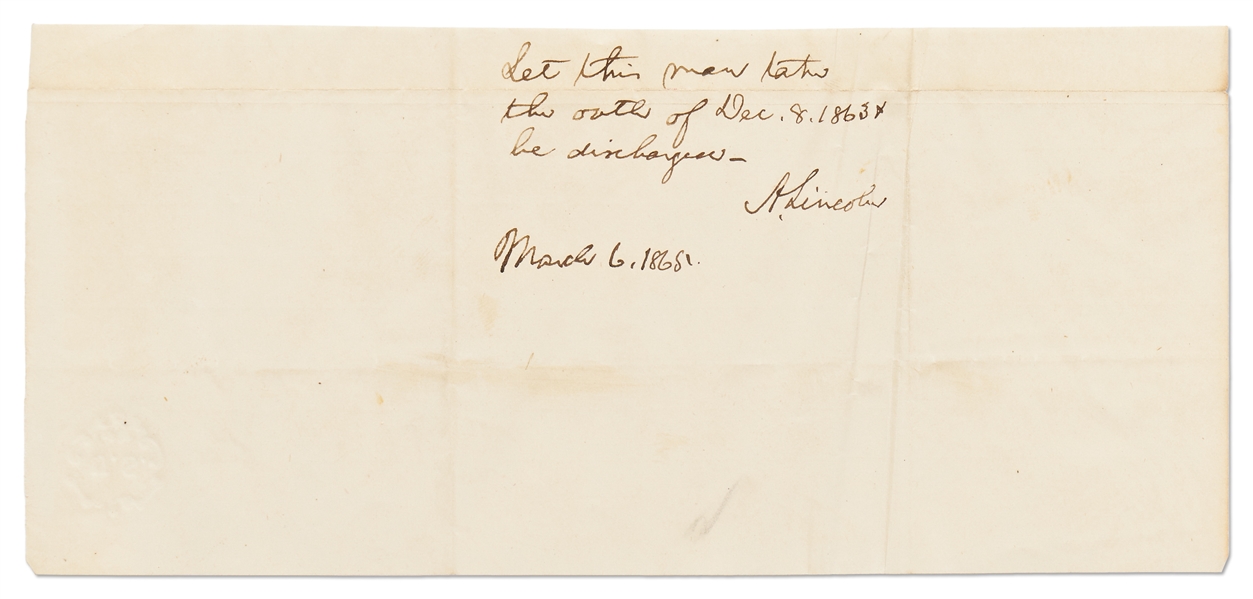 Let this man take
the oath of Dec. 8. 1863 &
be discharged—
A. Lincoln
March 6. 1865.